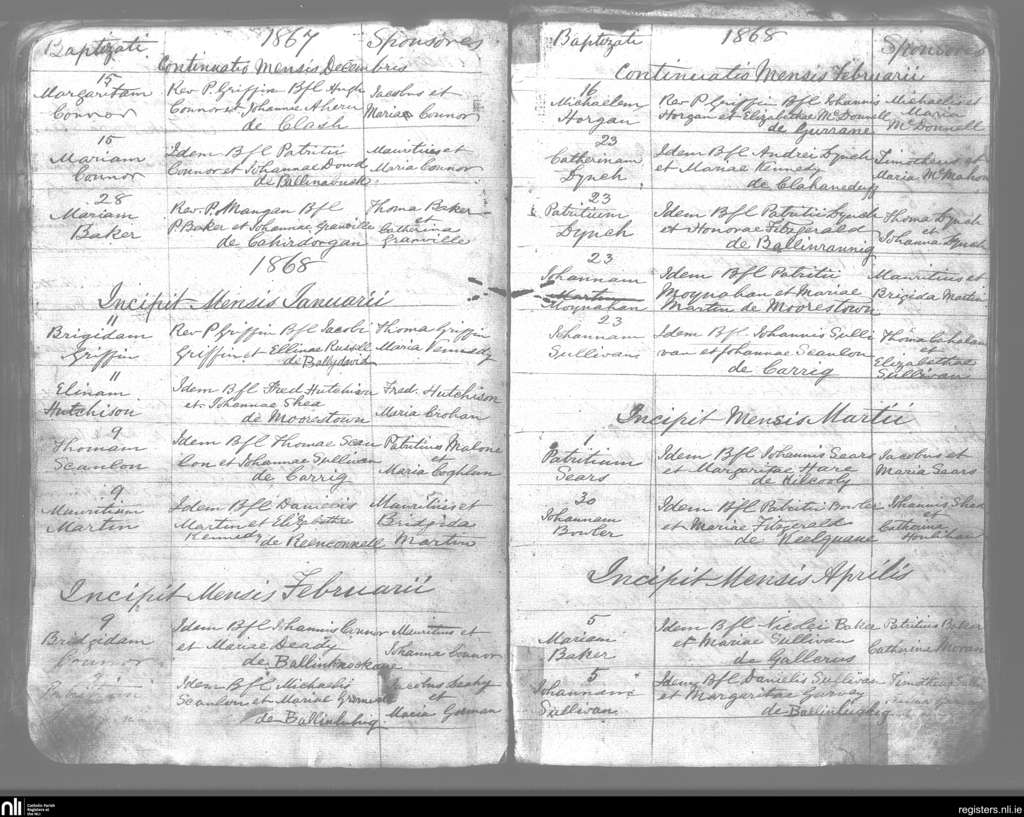 Baptizati 1867 Sponsores
Continuatio Mensis Decembris
15
Margaritam Rev P. Griffin Bfl Hugh Jacobus et
Connor Connor et Johannae Ahern Mariae Connor
de Clash
15
Mariam Idem Bfl Patritii Mauritius et
Connor Connor et Johannae Dowd Maria Connor
de Ballinavouck
28
Mariam Rev. P. Mangan Bfl Thoma Baker
Baker P Baker et Johannae Granville et
de Cahirdorgan Catherina Granville
1868
Incipit Mensis Januarii
11
Brigidam Rev P Griffin Bfl Jacobi Thoma Griffin
Griffin Griffin et Ellinae Russell Maria Kennedy
de Ballydavid
11
Elinam Idem Bfl Fred Hutchison Fred. Hutchison
Hutchison et Johannae Shea Maria Crohan
de Moorestown
9
Thomam Idem Bfl Thomae Scan Patritius Malone
Scanlon lon et Johannae Sullivan et
de Carrig Maria Coghlan
9
Mauritium Idem Bfl Danielis Mauritius et
Martin Martin et Elizabethae Bridgida
Kennedy de Reenconnell Martin
Incipit Mensis Februarii
9
Bridgidam Idem Bfl Johannis Connor Mauritius et
Connor et Mariae Deady Johanna Connor
de Ballinknockane
9
Patritium Idem Bfl Michaelis Jacobus
Scanlon et Mariae et
de Maria Gorman
Baptizati 1868 Sponsores
Continuatio Mensis Februarii
16
Michaelem Rev P Griffin Bfl Johannis Michaelis et
Horgan Horgan et Elizabethae McDonnell Maria
de Gurrane McDonnell
23
Catherinam Idem Bfl Andrei Lynch Timotheus et
Lynch et Mariae Kennedy Maria McMahon
de Clahaneduff
23
Patritium Idem Bfl Patritii Lynch Thoma Lynch
Lynch et Honorae Fitzgerald et
de Ballinrannig Johanna Lynch
23
Johannam Idem Bfl Patritii Mauritius et
Martin Moynahan et Mariae Brigida Martin
Moynahan Martin de Moorestown
23
Johannam Idem Bfl Johannis Sulli Thoma Cahalan
Sullivans van et Johannae Scanlon et
de Carrig Elizabethae Sullivan
Incipit Mensis Martii
1
Patritium Idem Bfl Johannis Sears Jacobus et
Sears et Margaritae Hare Maria Sears
de Kilcooly
30
Johannam Idem Bfl Patritii Bowler Johannis Shea
Bowler et Mariae Fitzgerald et
de Keelquane Catherina Houlihan
Incipit Mensis Aprilis
5
Mariam Idem Bfl Nicolei Baker Patritius Baker
Baker et Mariae Sullivan Catherina Moran
de Gallerus
5
Johannam Idem Bfl Danielis Sullivan Timotheus
Sullivan et Margaritae Garvey
de
nli Catholic Parish
Registers at
the NLI
registers.nli.ie